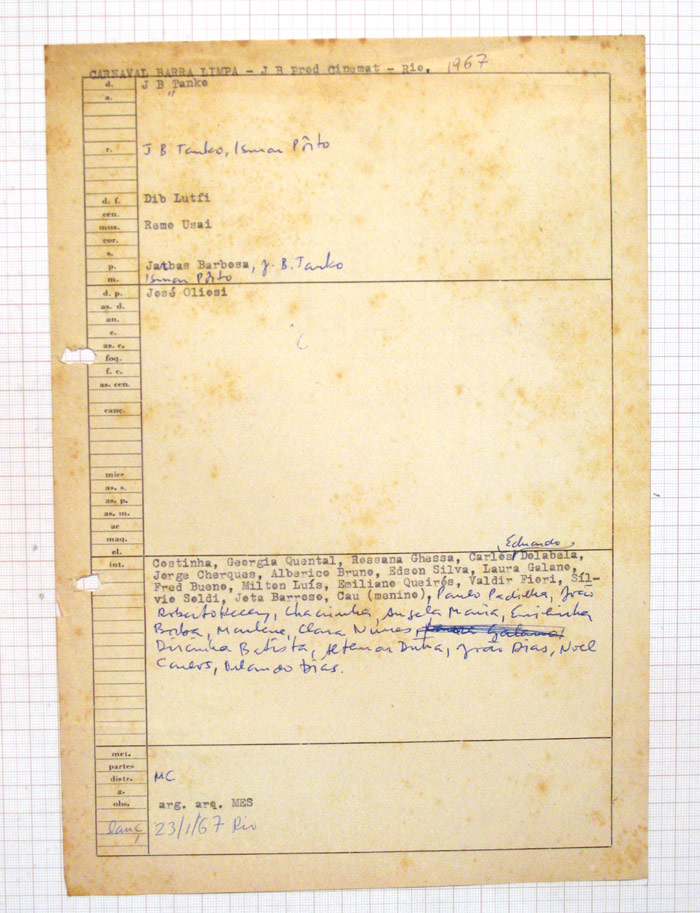 CARNAVAL BARRA LIMPA - J B Prod Cinemat - Rio, 1967
d. J B Tanko
a. "
r. J B Tanko, Ismar Pôrto
d. f. Dib Lutfi
cen.
mus. Remo Usai
cor.
s.
p. Jarbas Barbosa, J. B. Tanko
m. Ismar Pôrto
d. p. José Oliosi
as. d.
an.
c.
as. c.
foq.
f. c.
as. cen.
canç.
mier
as. s.
as. p.
as. m.
ae
maq.
el. Eduardo
int. Costinha, Georgia Quental, Rossana Ghessa, Carlos Delabela,
Jorge Cherques, Alberico Bruno, Edson Silva, Laura Galano,
Fred Bueno, Milton Luís, Emiliano Queirós, Valdir Fiori, Síl-
vio Soldi, Jota Barroso, Cau (menino), Paulo Padilha, João
Roberto Kelly, Chacrinha, Angela Maria, Emilinha
Borba, Marlene, Clara Nunes,
Dircinha Batista, Altemar Dutra, João Dias, Noel
Carlos, Orlando Dias.
met.
partes
distr. MC
a.
obs. arg. arq. MES
lanç 23/1/67 Rio